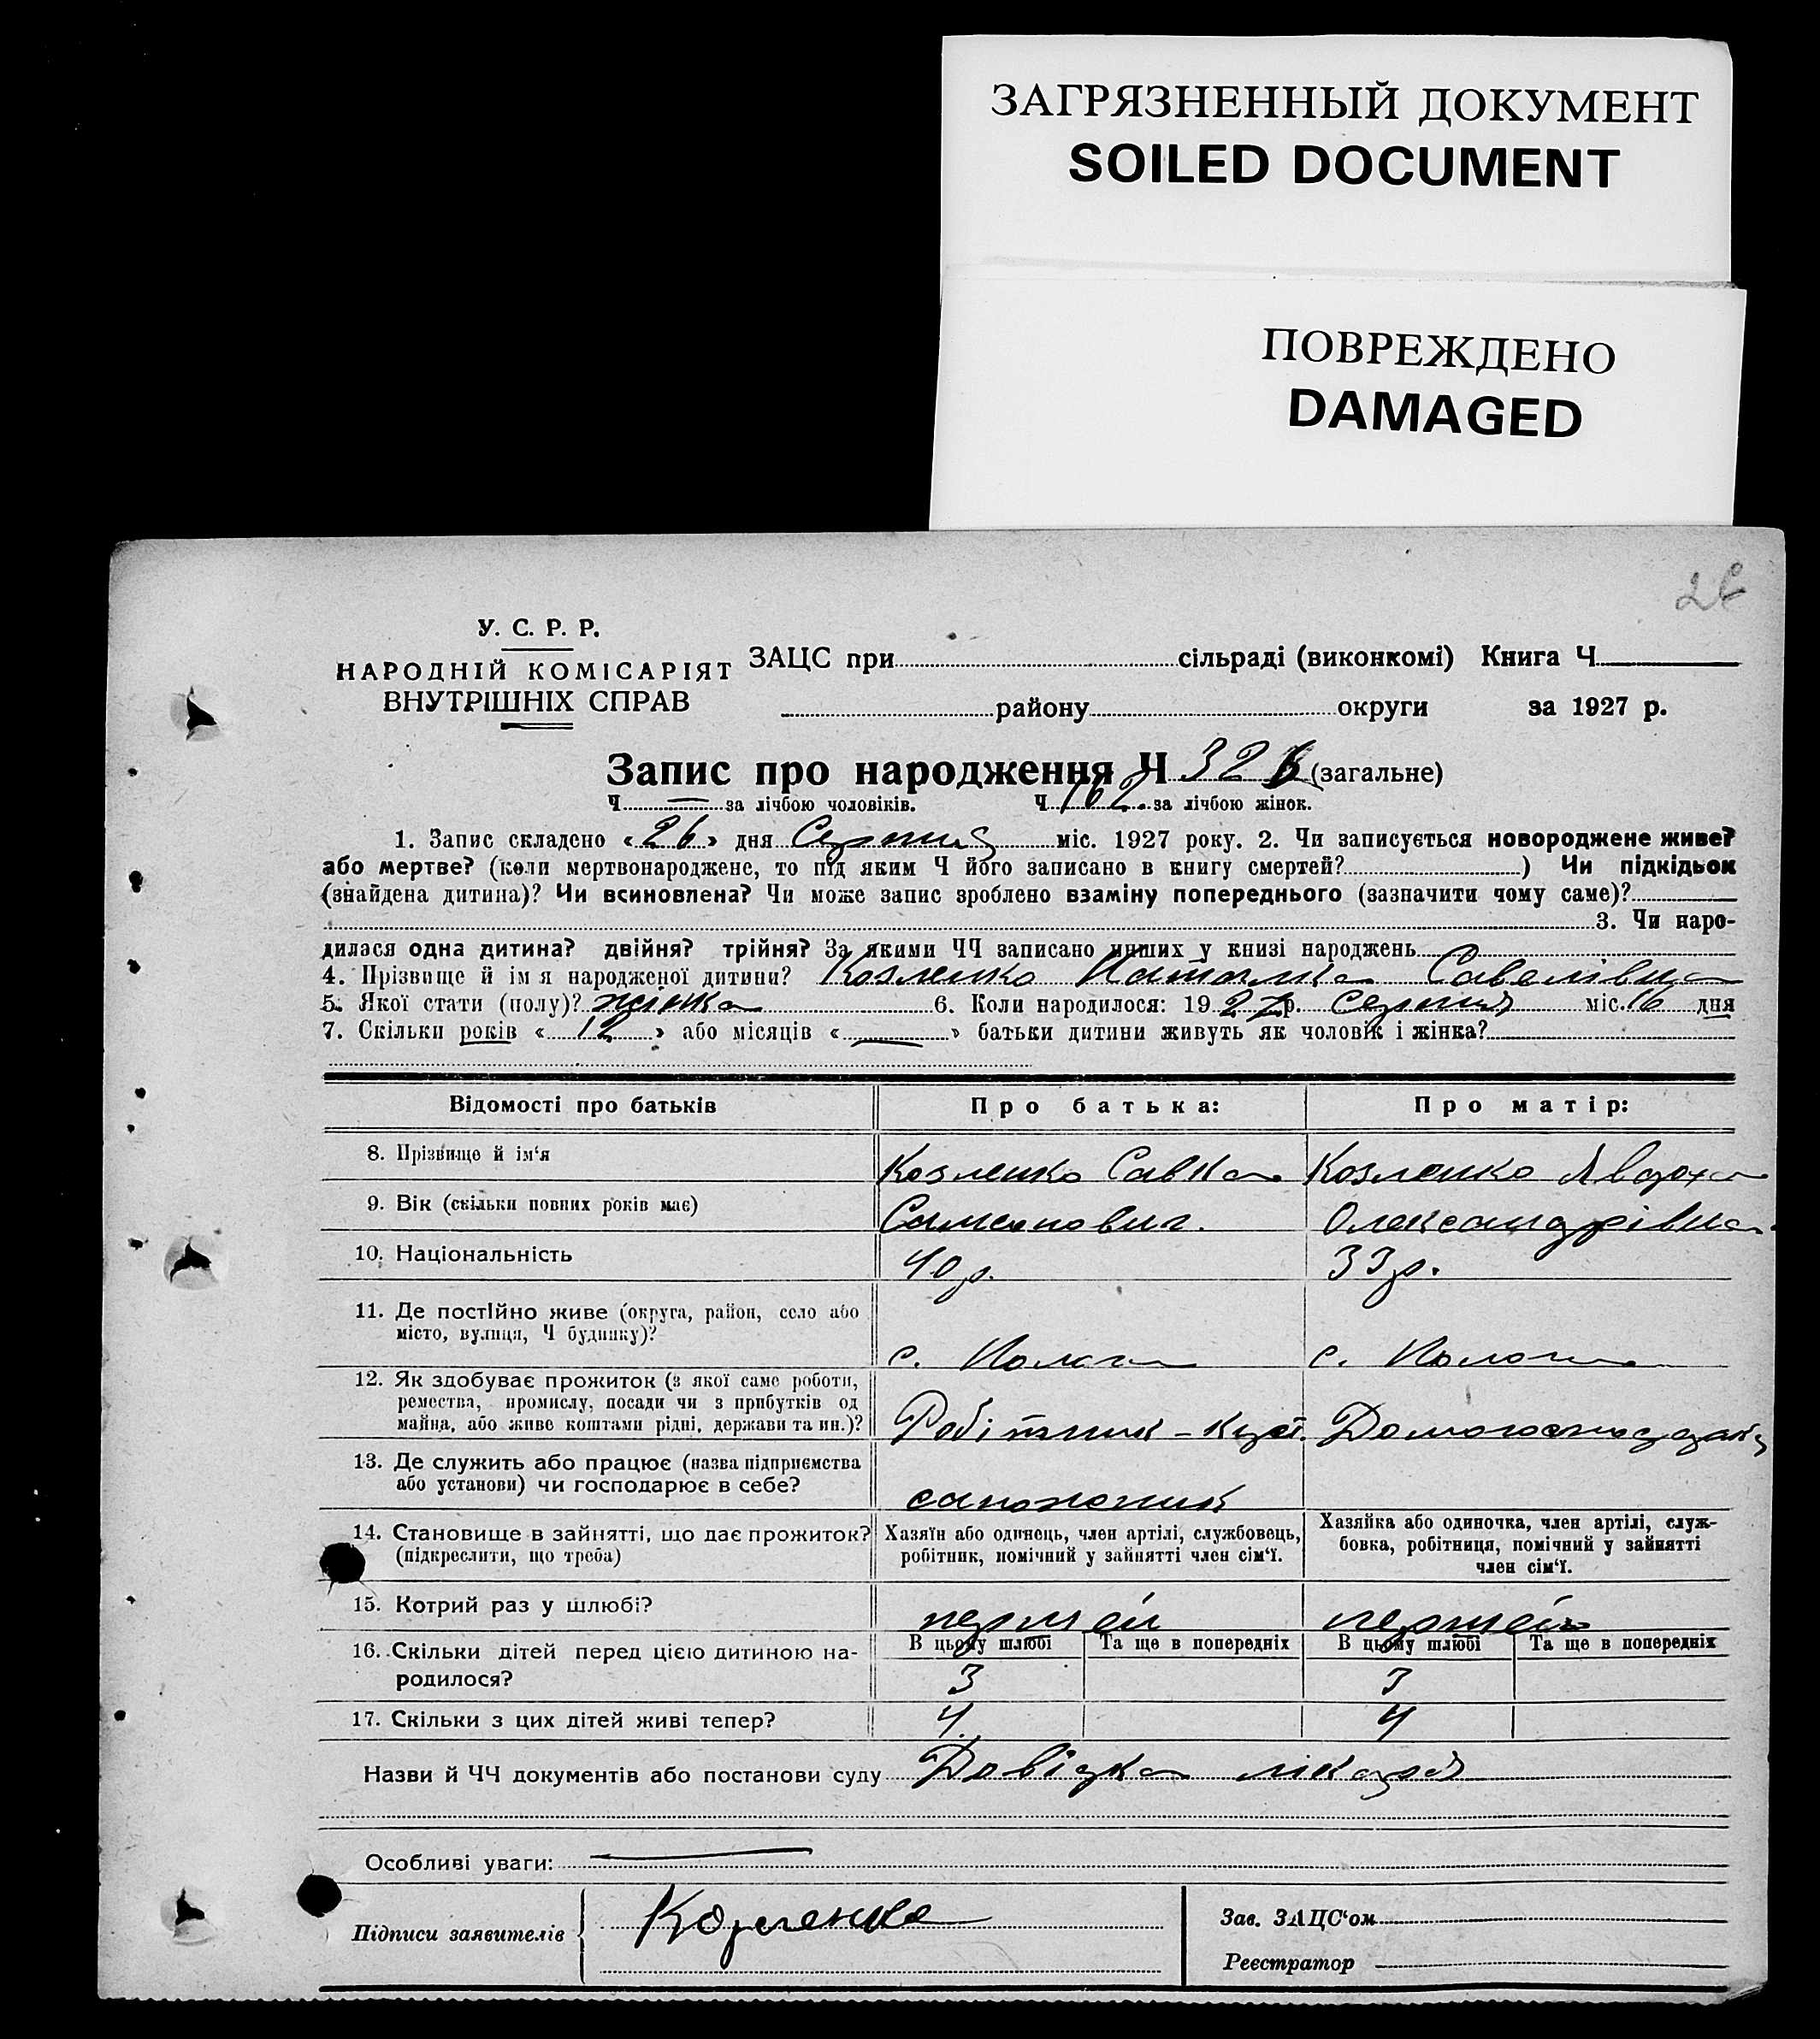 ЗАГРЯЗНЕННЫЙ ДОКУМЕНТ
SOILED DOCUMENT
ПОВРЕЖДЕНО
DAMAGED
У. С. Р. Р.
НАРОДНІЙ КОМІСАРІЯТ
ВНУТРІШНІХ СПРАВ
ЗАЦС при сільраді (виконкомі) Книга Ч
району округи за 1927 р.
Запис про народження Ч 326 (загальне)
Ч — за лічбою чоловіків. Ч 162. за лічбою жінок.
1. Запис складено «26» дня Серпня міс. 1927 року. 2. Чи записується новороджене живе?
або мертве? (коли мертвонароджене, то під яким Ч його записано в книгу смертей? ) Чи підкідьок
(знайдена дитина)? Чи всиновлена? Чи може запис зроблено взаміну попереднього (зазначити чому саме)?
3. Чи наро-
дилася одна дитина? двійня? трійня? За якими ЧЧ записано инших у книзі народжень
4. Прізвище й ім я народженої дитини? Козленко Наталка Савелівна
5. Якої стати (полу)? жінка 6. Коли народилося: 1927 р. серпня міс. 16 дня
7. Скільки років «12» або місяців «—» батьки дитини живуть як чоловік і жінка?
Відомості про батьків Про батька: Про матір:
8. Прізвище й ім‘я Козленко Савка Козленко Явдоха
9. Вік (скільки повних років має) Симонович. Олександрівна
10. Національність 40 р. 33 р.
11. Де постійно живе (округа, район, село або
місто, вулиця, Ч будинку)? с. Пологи с. Пологи
12. Як здобуває прожиток (з якої саме роботи,
ремества, промислу, посади чи з прибутків од
майна, або живе коштами рідні, держави та ин.)? Робітник - куст. Домогосподарка
13. Де служить або працює (назва підприємства
або установи) чи господарює в себе? сапожник
14. Становище в зайнятті, що дає прожиток? Хазяїн або одинець, член артілі, службовець, Хазяйка або одиночка, член артілі, служ-
(підкреслити, що треба) робітник, помічний у зайнятті член сім‘ї. бовка, робітниця, помічний у зайнятті
член сім‘ї.
15. Котрий раз у шлюбі? первий первий
16. Скільки дітей перед цією дитиною на- В цьому шлюбі Та ще в попередніх В цьому шлюбі Та ще в попередніх
родилося? 3 3
17. Скільки з цих дітей живі тепер? 4 4
Назви й ЧЧ документів або постанови суду Довідка лікаря
Особливі уваги: —
Підписи заявителів Зав. ЗАЦС‘ом
Реєстратор